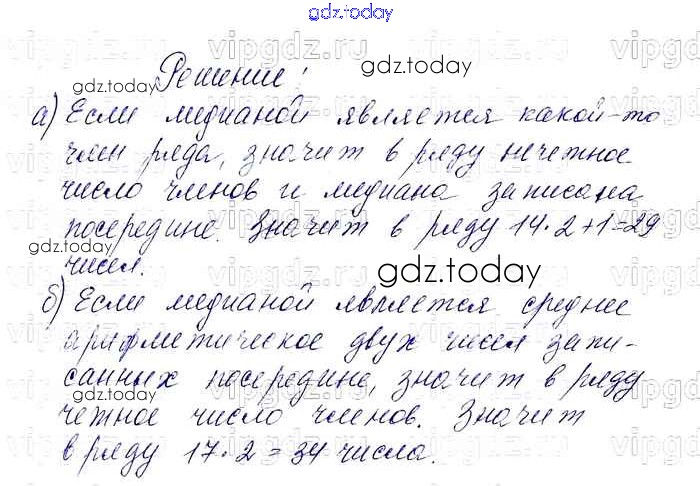 gdz.today
Решение:
gdz.today
gdz.today
а) Если медианой является какой-то
член ряда, значит в ряду нечетное
число членов и медиана записана
посередине. Значит в ряду 14·2+1=29
gdz.today
чисел.
gdz.today
б) Если медианой является среднее
арифметическое двух чисел запи-
санных посередине, значит в ряду
четное число членов. Значит
в ряду 17·2=34 числа.
vipgdz.ru